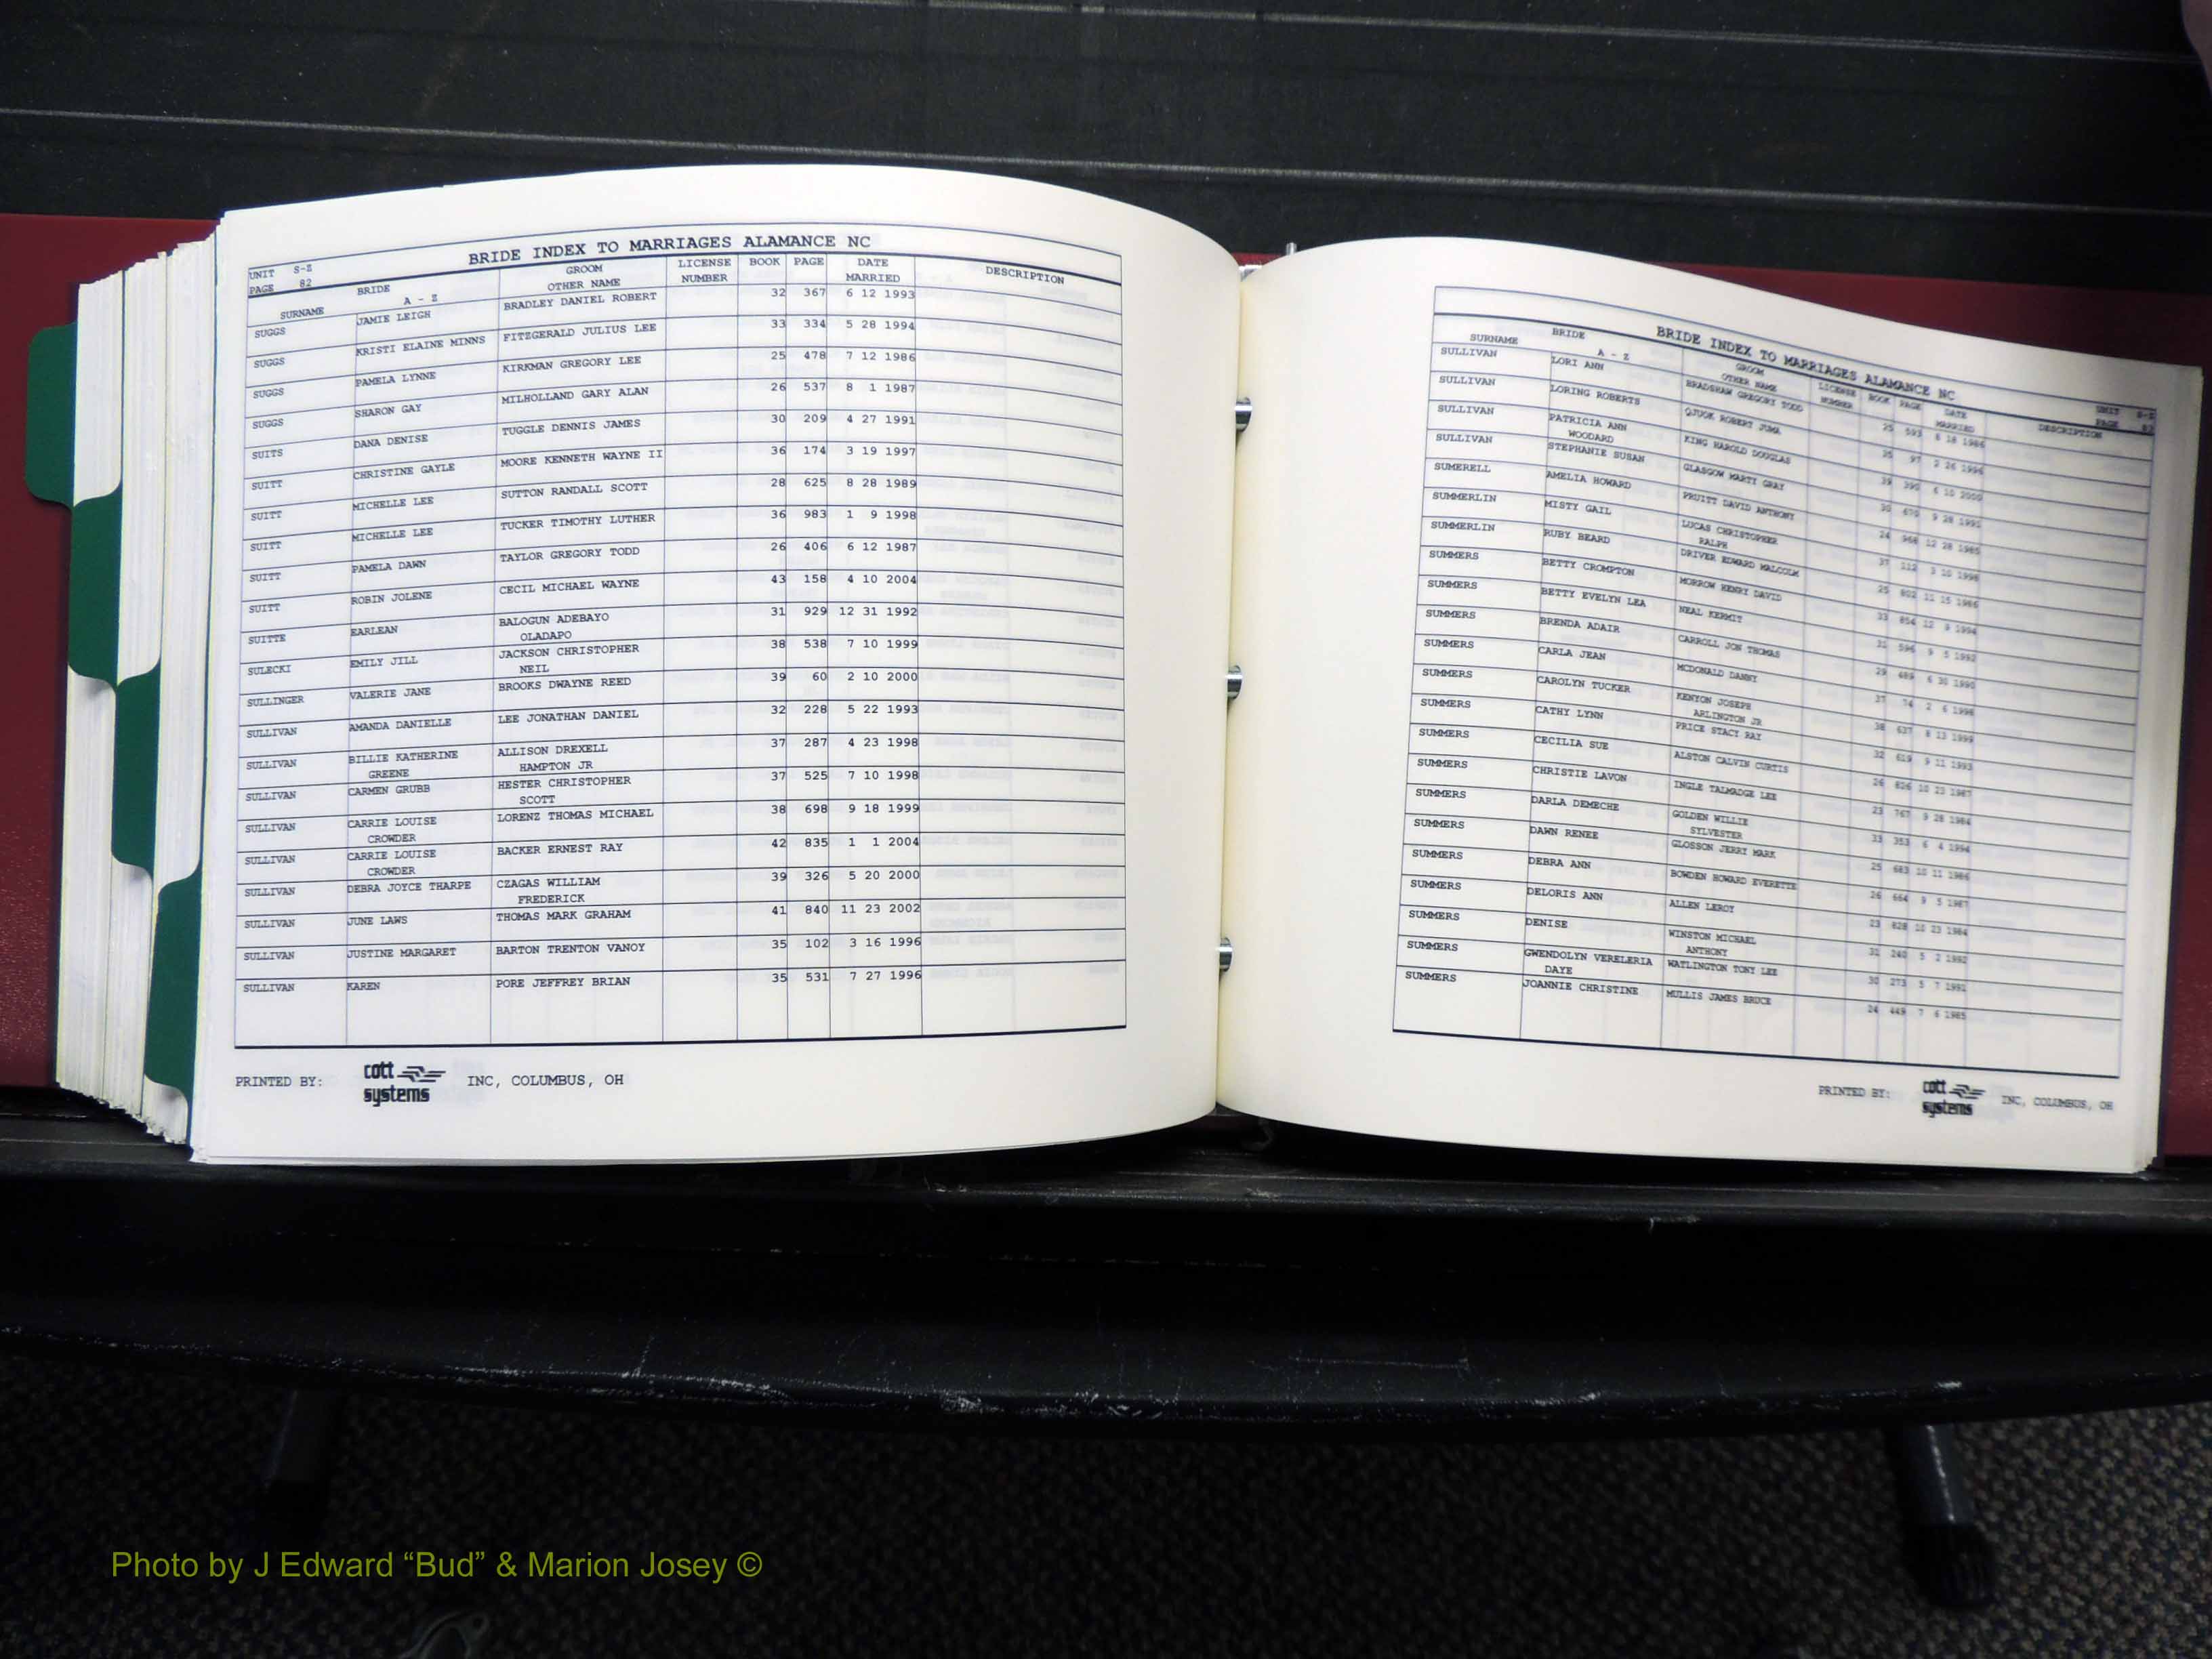 BRIDE INDEX TO MARRIAGES ALAMANCE NC
UNIT S-Z
PAGE 82
SURNAME BRIDE A - Z GROOM OTHER NAME LICENSE NUMBER BOOK PAGE DATE MARRIED DESCRIPTION
SUGGS JAMIE LEIGH BRADLEY DANIEL ROBERT 32 367 6 12 1993
SUGGS KRISTI ELAINE MINNS FITZGERALD JULIUS LEE 33 334 5 28 1994
SUGGS PAMELA LYNNE KIRKMAN GREGORY LEE 25 478 7 12 1986
SUGGS SHARON GAY MILHOLLAND GARY ALAN 26 537 8 1 1987
SUITS DANA DENISE TUGGLE DENNIS JAMES 30 209 4 27 1991
SUITT CHRISTINE GAYLE MOORE KENNETH WAYNE II 36 174 3 19 1997
SUITT MICHELLE LEE SUTTON RANDALL SCOTT 28 625 8 28 1989
SUITT MICHELLE LEE TUCKER TIMOTHY LUTHER 36 983 1 9 1998
SUITT PAMELA DAWN TAYLOR GREGORY TODD 26 406 6 12 1987
SUITT ROBIN JOLENE CECIL MICHAEL WAYNE 43 158 4 10 2004
SUITTE EARLEAN BALOGUN ADEBAYO OLADAPO 31 929 12 31 1992
SULECKI EMILY JILL JACKSON CHRISTOPHER NEIL 38 538 7 10 1999
SULLINGER VALERIE JANE BROOKS DWAYNE REED 39 60 2 10 2000
SULLIVAN AMANDA DANIELLE LEE JONATHAN DANIEL 32 228 5 22 1993
SULLIVAN BILLIE KATHERINE GREENE ALLISON DREXELL HAMPTON JR 37 287 4 23 1998
SULLIVAN CARMEN GRUBB HESTER CHRISTOPHER SCOTT 37 525 7 10 1998
SULLIVAN CARRIE LOUISE CROWDER LORENZ THOMAS MICHAEL 38 698 9 18 1999
SULLIVAN CARRIE LOUISE CROWDER BACKER ERNEST RAY 42 835 1 1 2004
SULLIVAN DEBRA JOYCE THARPE CZAGAS WILLIAM FREDERICK 39 326 5 20 2000
SULLIVAN JUNE LAWS THOMAS MARK GRAHAM 41 840 11 23 2002
SULLIVAN JUSTINE MARGARET BARTON TRENTON VANOY 35 102 3 16 1996
SULLIVAN KAREN PORE JEFFREY BRIAN 35 531 7 27 1996
PRINTED BY: cott systems INC, COLUMBUS, OH
BRIDE INDEX TO MARRIAGES ALAMANCE NC
UNIT S-Z
PAGE 83
SURNAME BRIDE A - Z GROOM OTHER NAME LICENSE NUMBER BOOK PAGE DATE MARRIED DESCRIPTION
SULLIVAN LORI ANN BRADSHAW GREGORY TODD 25 593 8 1986
SULLIVAN LORING ROBERTS OJUOK ROBERT JUMA 35 97 1996
SULLIVAN PATRICIA ANN WOODARD KING HAROLD DOUGLAS 39 390 6 10 2000
SULLIVAN STEPHANIE SUSAN GLASGOW MARTY GRAY 30 9 28 1991
SUMERELL AMELIA HOWARD PRUITT DAVID ANTHONY 24 968 12 28 1985
SUMMERLIN MISTY GAIL LUCAS CHRISTOPHER RALPH 37 112 3 10 1998
SUMMERLIN RUBY BEARD DRIVER EDWARD MALCOLM 25 11 15 1986
SUMMERS BETTY CROMPTON MORROW HENRY DAVID 33 854 12 9 1994
SUMMERS BETTY EVELYN LEA NEAL KERMIT 31 596 9 5 1992
SUMMERS BRENDA ADAIR CARROLL JON THOMAS 29 489 6 30 1990
SUMMERS CARLA JEAN MCDONALD DANNY 37 74 2 6 1998
SUMMERS CAROLYN TUCKER KENYON JOSEPH ARLINGTON JR 38 637 8 13 1999
SUMMERS CATHY LYNN PRICE STACY RAY 32 619 9 11 1993
SUMMERS CECILIA SUE ALSTON CALVIN CURTIS 26 826 10 23 1987
SUMMERS CHRISTIE LAVON INGLE TALMADGE LEE 23 767 9 28 1984
SUMMERS DARLA DEMECHE GOLDEN WILLIE SYLVESTER 33 353 6 4 1994
SUMMERS DAWN RENEE GLOSSON JERRY MARK 25 683 10 11 1986
SUMMERS DEBRA ANN BOWDEN HOWARD EVERETTE 26 664 9 5 1987
SUMMERS DELORIS ANN ALLEN LEROY 23 828 10 23 1984
SUMMERS DENISE WINSTON MICHAEL ANTHONY 31 240 5 2 1992
SUMMERS GWENDOLYN VERELERIA DAYE WATLINGTON TONY LEE 30 273 5 7 1991
SUMMERS JOANNIE CHRISTINE MULLIS JAMES BRUCE 24 449 7 6 1985
PRINTED BY: cott systems INC, COLUMBUS, OH
Photo by J Edward “Bud” & Marion Josey ©